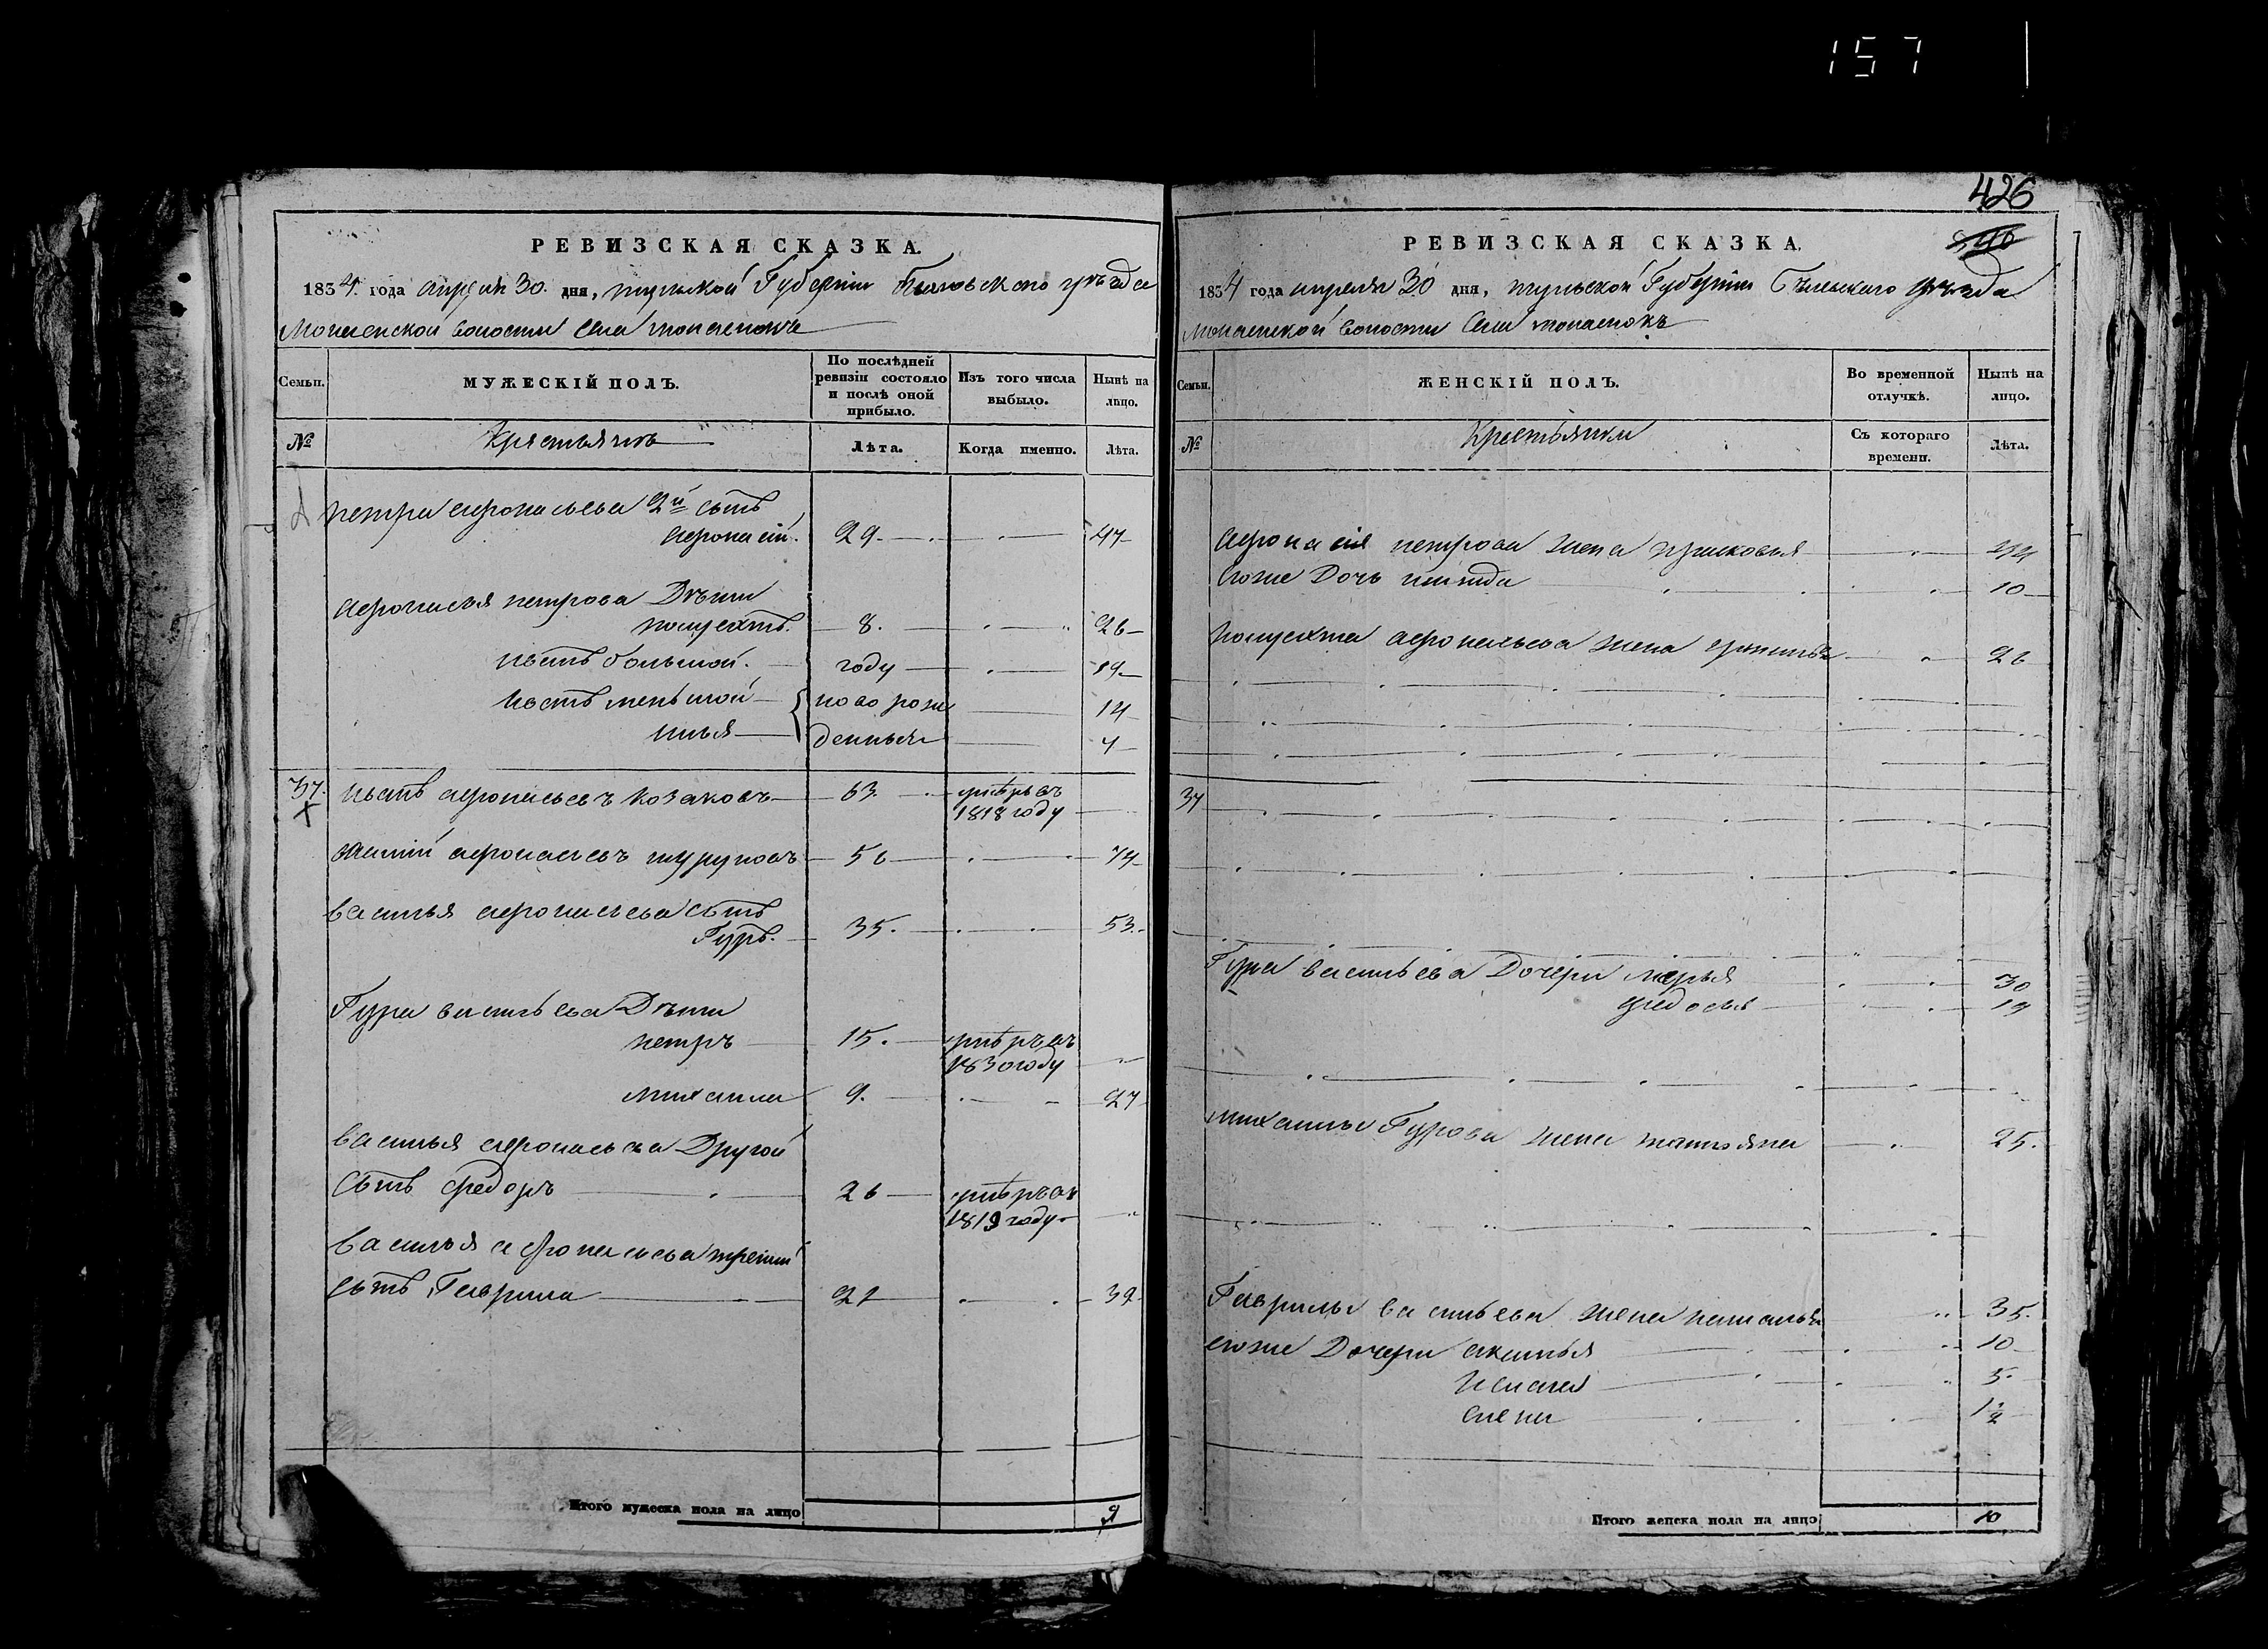 157
426
РЕВИЗСКАЯ СКАЗКА.
1834 года апреля 30 дня, тульской Губернiи Белевского уезда
волости села
Семьи.
МУЖЕСКІЙ ПОЛЪ.
По послѣдней ревизіи состояло и послѣ оной прибыло.
Изъ того числа выбыло.
Нынѣ на лицо.
№
Крестьянъ
Лѣта.
Когда именно.
Лѣта.
петра афонасьева 2й сынъ
афонасiй. 29. 47
афонасья петрова Дѣти
8. 26
иванъ большой. году 19
иванъ меньшой ново рож 14
илья денные 4
37. иванъ афонасьевъ козаковъ 63. умеръ въ
1818 году
василiй афонасьевъ 56 74
василья афонасьева сынъ
Гуръ. 35. 53.
Гура васильева Дѣти
петръ 15. умеръ въ
1830 году
михаила 9. 27
василья афонасьева Другой
сынъ федоръ 26 умеръ въ
1819 году
василья афонасьева третiй
сынъ Гаврила 21 39
Итого мужеска пола на лицо 9
РЕВИЗСКАЯ СКАЗКА.
1834 года апреля 30 дня, тульской Губернiи Белевского уезда
волости села
Семьи.
ЖЕНСКІЙ ПОЛЪ.
Во временной отлучкѣ.
Нынѣ на лицо.
№
Крестьянки
Съ котораго времени.
Лѣта.
Афонасiя петрова жена прасковья 44
его же Дочь 10
афонасьева жена 26
37
Гура васильева Дочери марья 30
федосья 19
михаилы Гурова жена татьяна 25.
Гаврилы васильева жена наталья 35.
его же Дочери акилина 10
5
елена 1 1/2
Итого женска пола на лицо 10